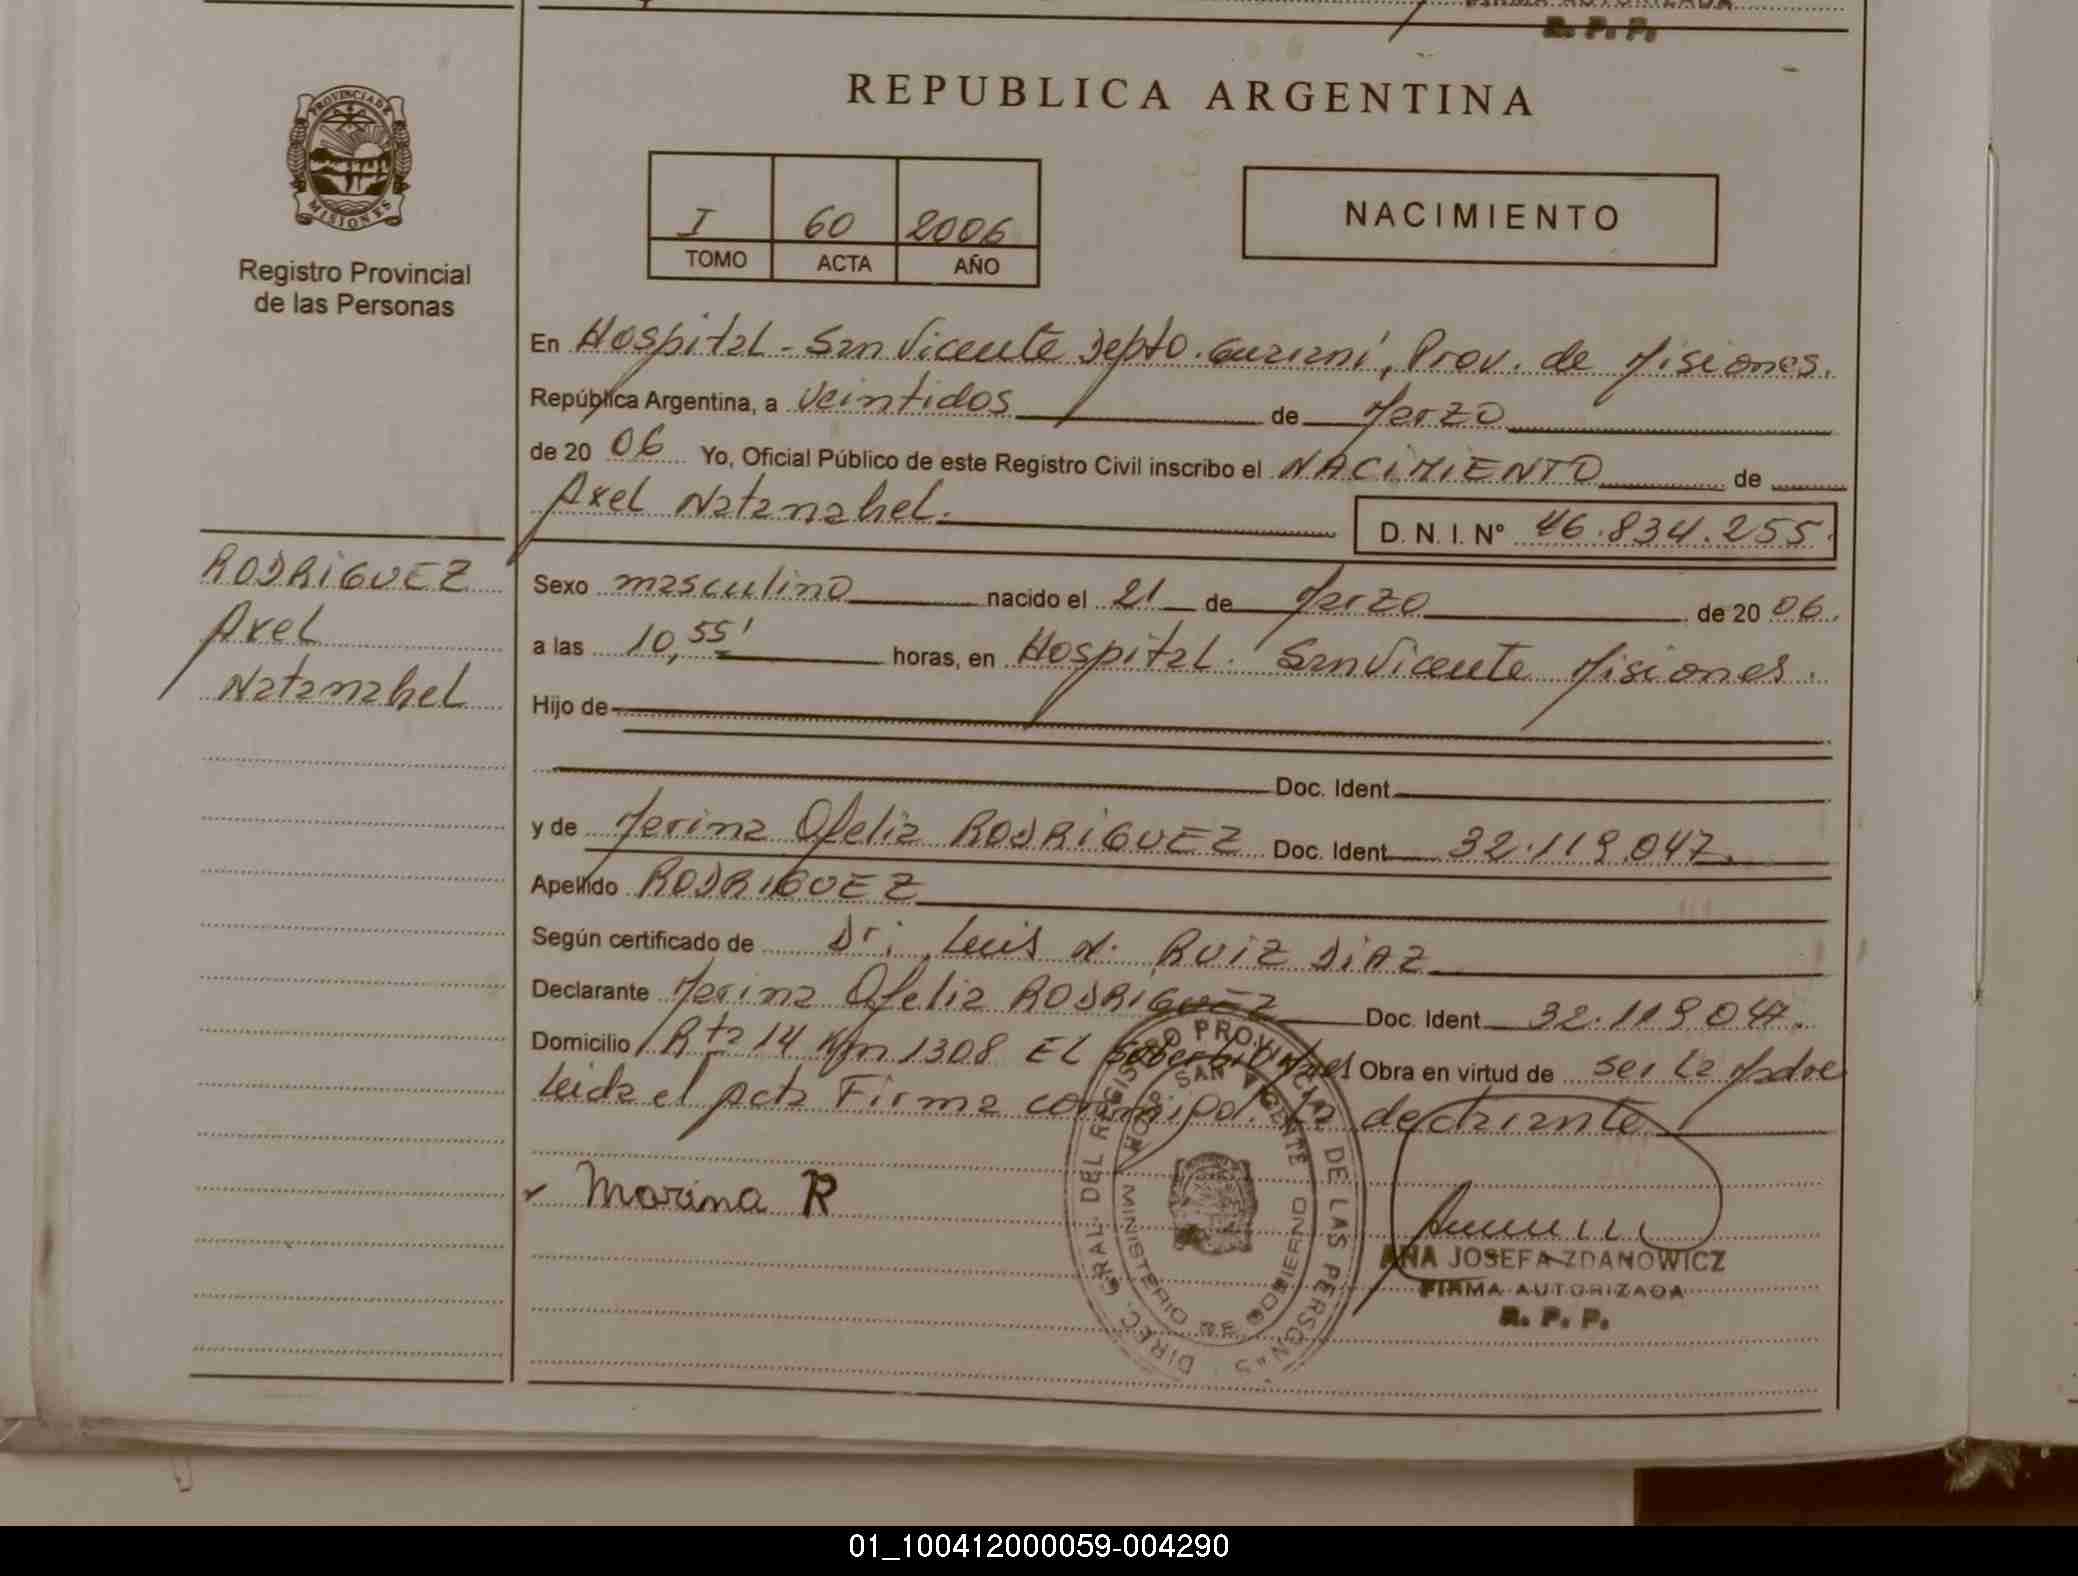 R. P. P.
REPUBLICA ARGENTINA
PROVINCIA DE
MISIONES
Registro Provincial
de las Personas
I 60 2006
TOMO ACTA AÑO
NACIMIENTO
En Hospital - San Vicente Depto. Guaraní, Prov. de Misiones.
República Argentina, a veintidos de Marzo
de 20 06 Yo, Oficial Público de este Registro Civil inscribo el NACIMIENTO de
Axel Natanahel.
D. N. I. N° 46.834.255.
RODRIGUEZ
Axel
Natanahel
Sexo masculino nacido el 21 de Marzo de 20 06.
a las 10,55' horas, en Hospital. San Vicente Misiones.
Hijo de
Doc. Ident
y de Marina Ofelia RODRIGUEZ Doc. Ident 32.119.047.
Apellido RODRIGUEZ
Según certificado de Dr. Luis N. RUIZ DIAZ
Declarante Marina Ofelia RODRIGUEZ Doc. Ident 32.119.047.
Domicilio Rta 14 Km 1308 EL Soberbio Mnes Obra en virtud de ser la Madre
Leida el Acta Firma conmigo. la declarante
Marina R
DIREC. GRAL. DEL REGISTRO PROVINCIAL DE LAS PERSONAS
HOSP. SAN VICENTE
MINISTERIO DE GOBIERNO
ANA JOSEFA ZDANOWICZ
FIRMA AUTORIZADA
R. P. P.
01_100412000059-004290